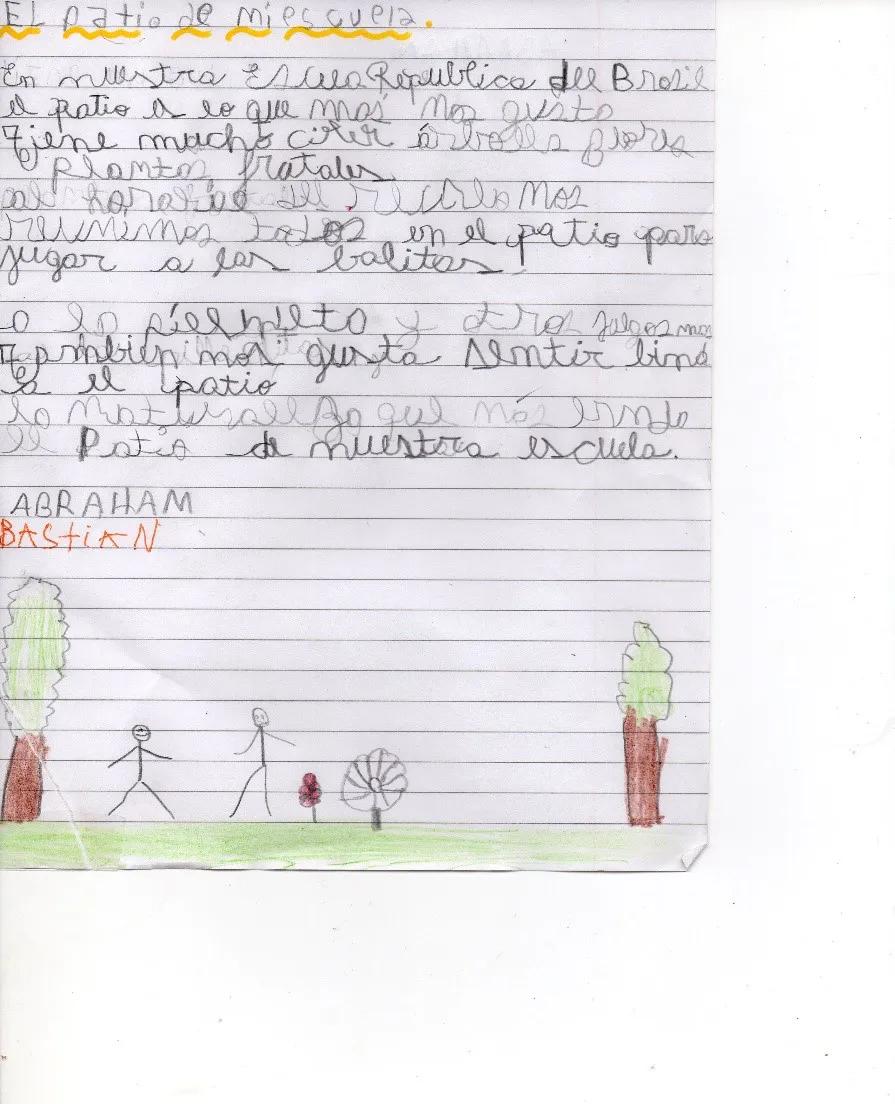 El patio de mi escuela.
En nuestra Escuea Republica del Brasil
el patio es lo que mas nos gusta
Tiene mucho árboles flores
plantas fratales
horario del recreo nos
reunimos todos en el patio para
jugar a las balitas
a la y otros juegos
Tambien nos gusta sentir
es el patio
la naturalleza que más
el Patio de nuestra escuela.
ABRAHAM
BAStiAN